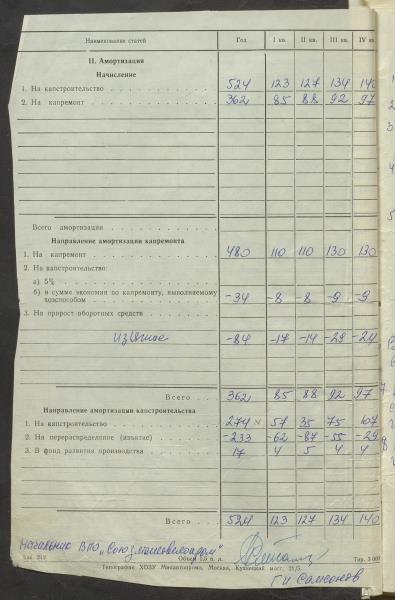 Наименование статей Год I кв. II кв. III кв. IV кв.
II. Амортизация
Начисление
1. На капстроительство 524 123 127 134 140
2. На капремонт 362 85 88 92 97
Всего амортизации
Направление амортизации капремонта
1. На капремонт 480 110 110 130 130
2. На капстроительство:
а) 5%
б) в сумме экономии по капремонту, выполняемому
хозспособом -34 -8 -8 -9 -9
3. На прирост оборотных средств
Изъятие -84 -17 -14 -29 -24
Всего 362 85 88 92 97
Направление амортизации капстроительства
1. На капстроительство 274 57 35 75 107
2. На перераспределение (изъятие) -233 -62 -87 -55 -29
3. В фонд развития производства 17 4 5 4 4
Всего 524 123 127 134 140
Начальник ВПО
Зак. Объем 1,5 п. л. Тир.
Типография ХОЗУ Минавтопрома, Москва, Кузнецкий мост, 21/5.
Г.И. Самсонов